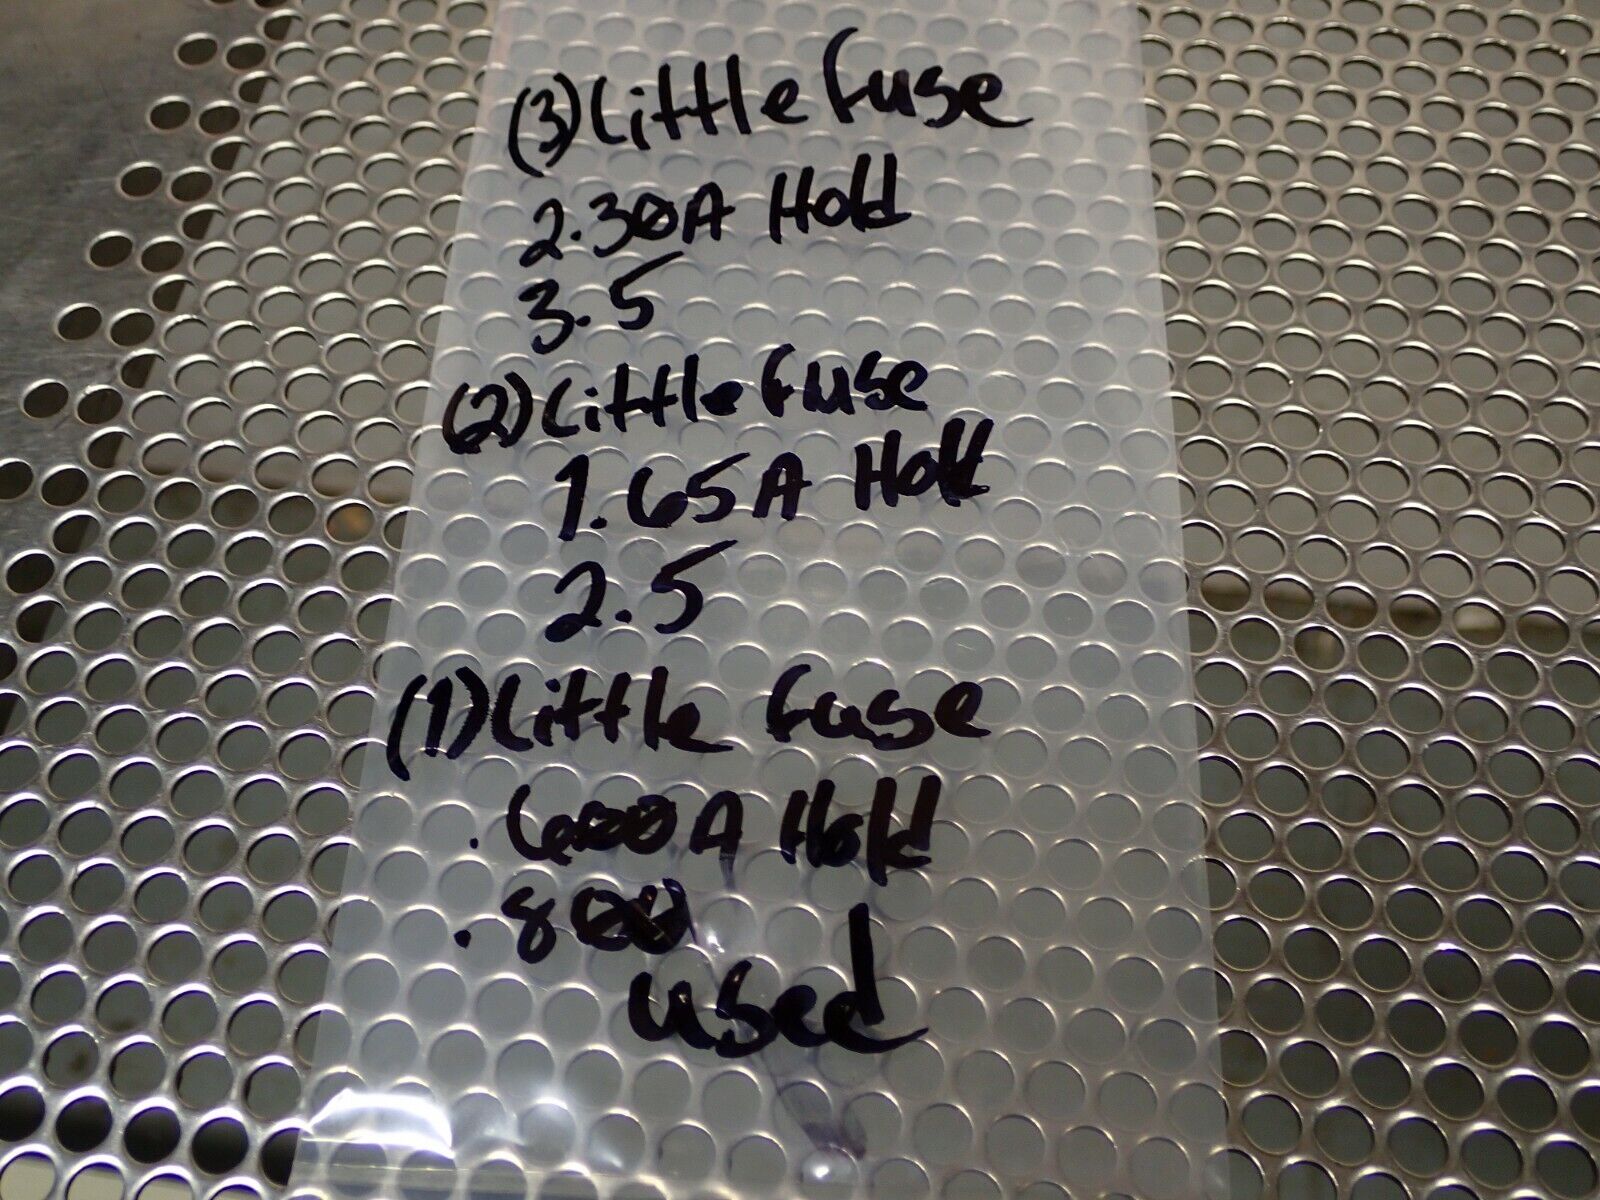 (3) Little fuse
2.30A Hold
3.5
(2) Little fuse
1.65A Hold
2.5
(1) Little fuse
.600A Hold
.800
used